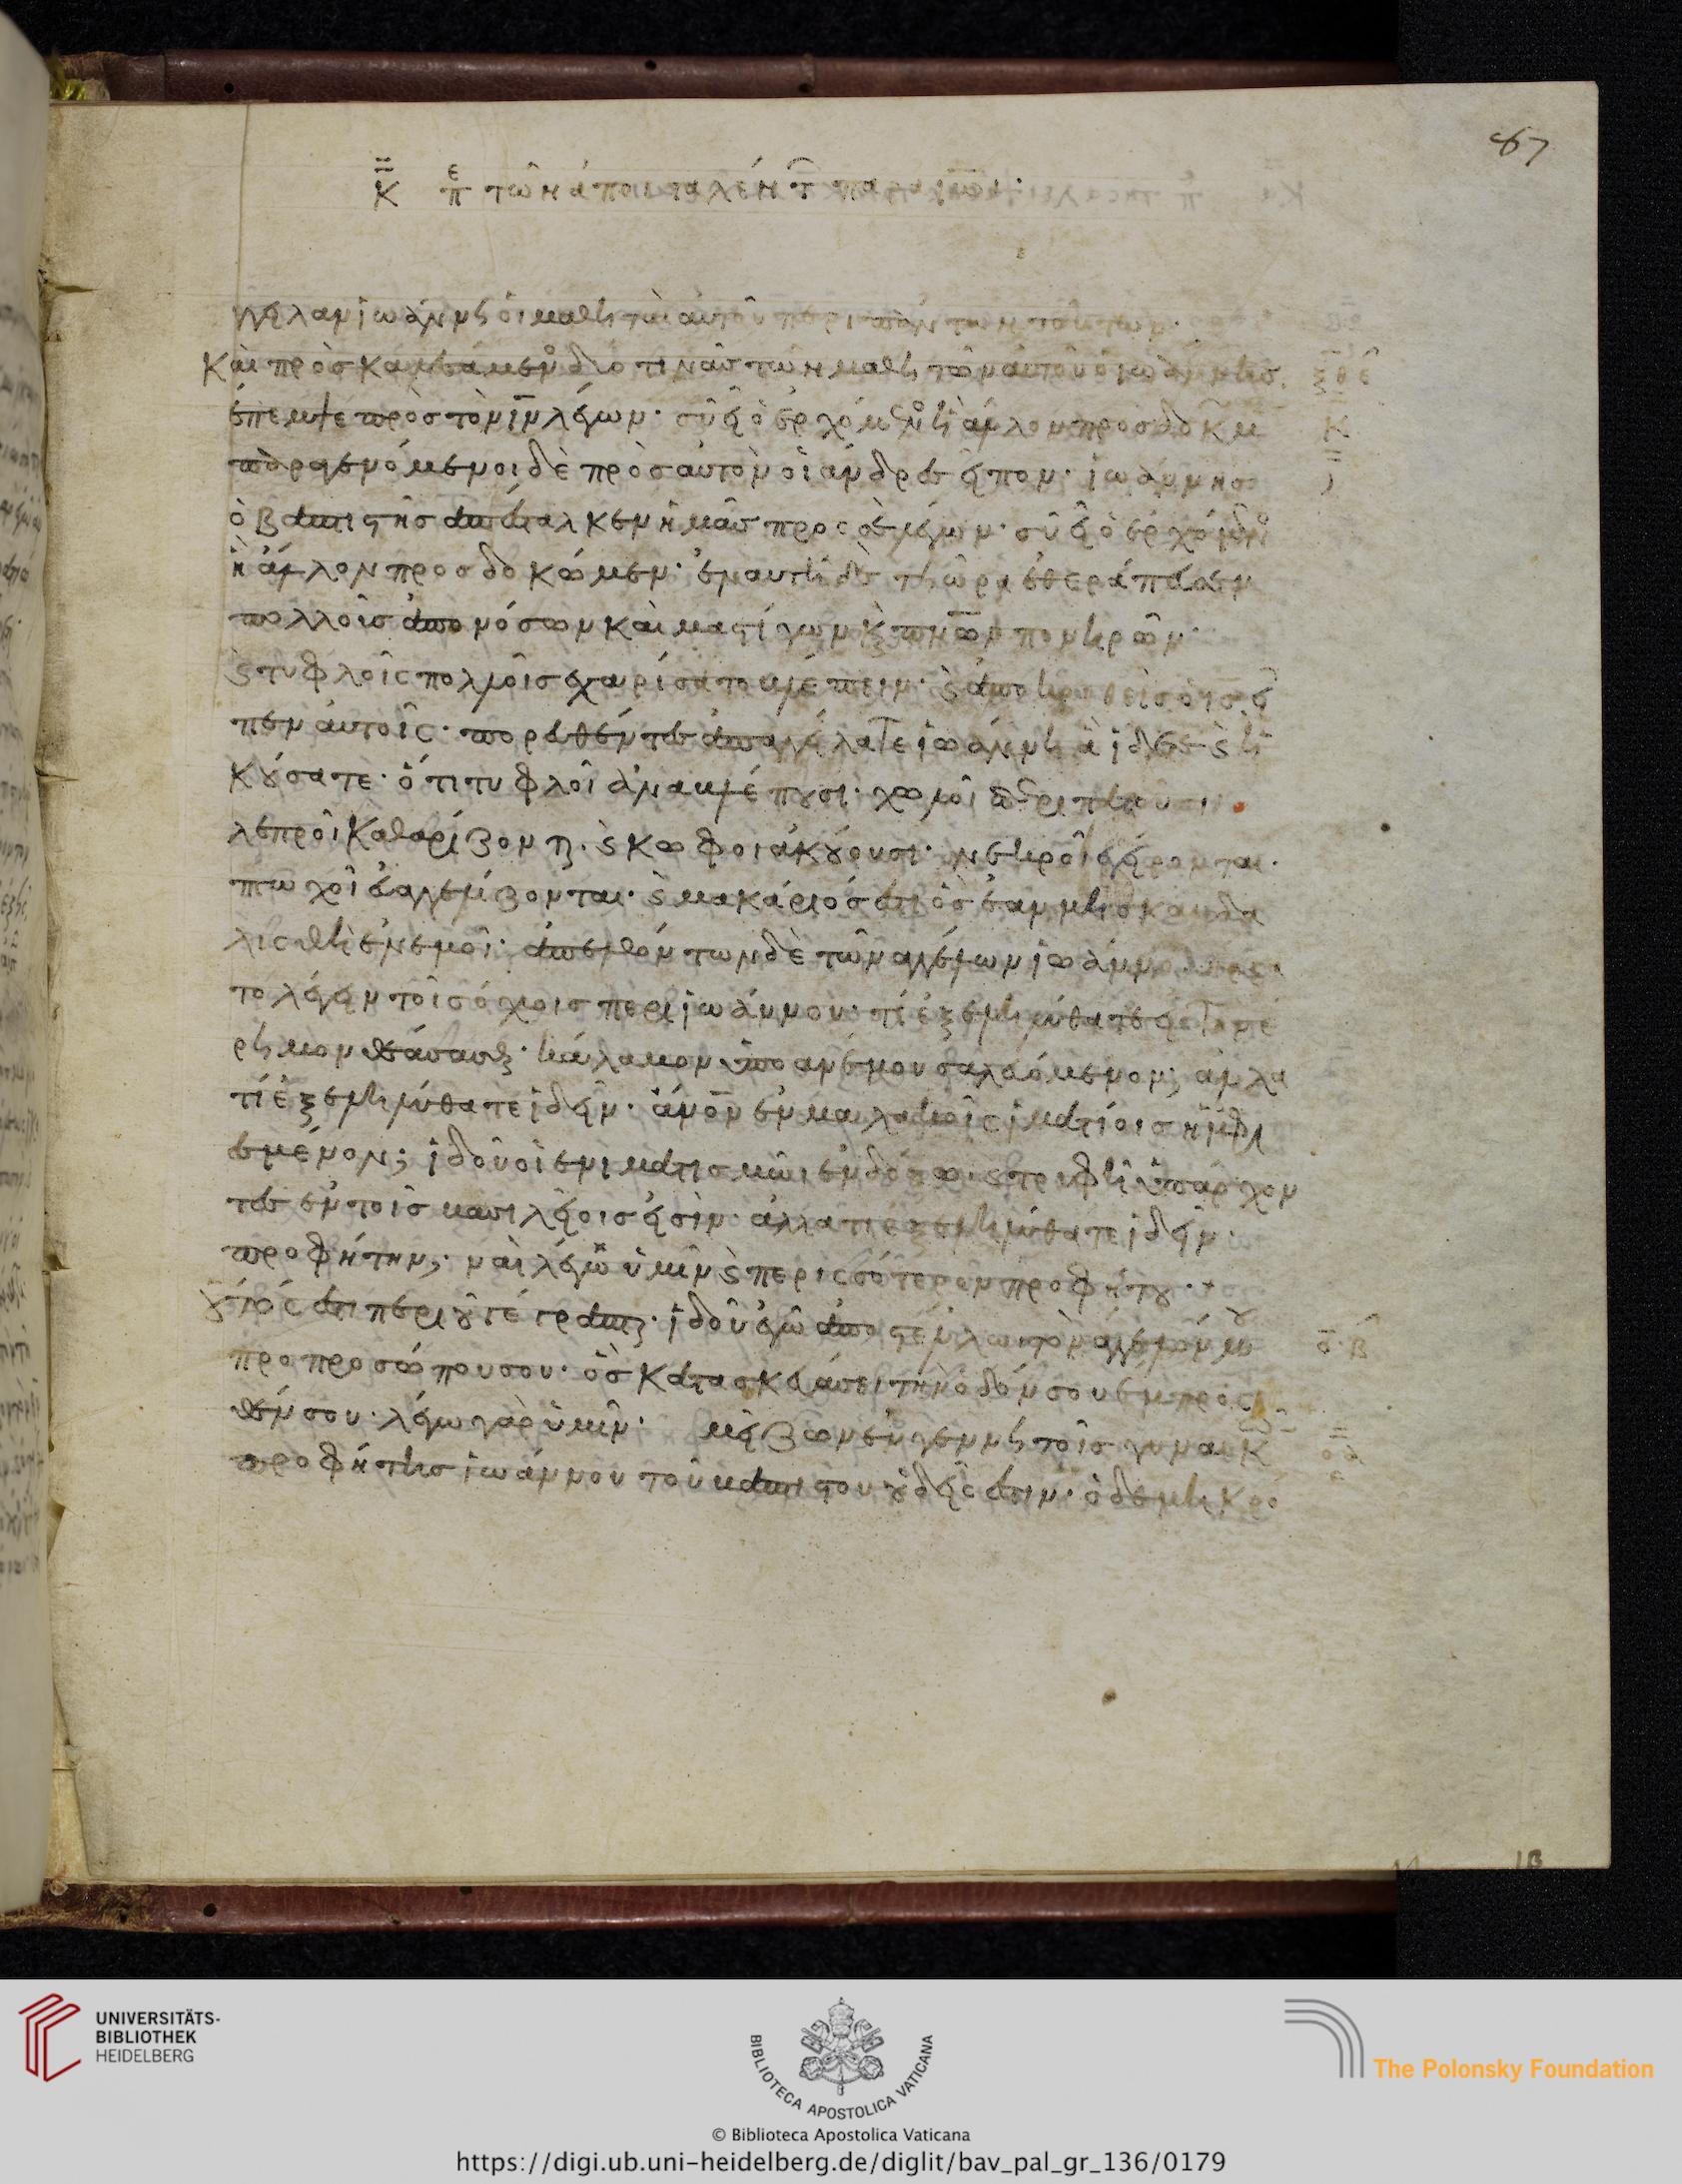 87
κ̅ πε τῶν ἀποσταλέντ παρὰ ἰω·
γγειλαν ἰωάννῃ οἱ μαθηταὶ αὐτοῦ περὶ πάντων τούτων·
Καὶ προσκαλεσάμενος δύο τινὰς τῶν μαθητῶν αὐτοῦ ὁ ἰωάννης
ἔπεμψε πρὸς τὸν ιν λέγων· σὺ εἶ ὁ ἐρχόμενος ἢ ἄλλον προσδοκῶμεν
παραγενόμενοι δὲ πρὸς αὐτὸν οἱ άνδρες εἶπον· ἰωάννης
ὁ βαπτιστὴς ἀπέσταλκεν ἡμᾶς πρὸς σὲ λέγων· σὺ εἶ ὁ ἐρχόμενος
ἢ ἄλλον προσδοκῶμεν· ἐν αὐτῇ δὲ τῇ ὥρα ἐθεράπευσεν
πολλοὺς ἀπὸ νόσων καὶ μαστίγων κ πνων πονηρῶν·
ς τυφλοῖς πολλοῖς ἐχαρίσατο βλέπειν· ς ἀποκριθεὶς ὁ ις εἶ
πεν αὐτοῖς· πορευθέντες ἀπαγγείλατε ἰωάννῃ ἃ ἴδετε ς ἠ
κούσατε· ὅτι τυφλοὶ ἀναβλέπουσι· χωλοὶ περιπατοῦσι
λεπροὶ καθαρίζονται· ς κωφοὶ ἀκούουσι· νεκροὶ ἐγείρονται·
πτωχοὶ εὐαγγελίζονται· ς μακάριός ἐστι ὃς ἐὰν μὴ σκανδα
λισθῇ ἐν ἐμοί· ἀπελθόντων δὲ τῶν ἀγγέλων ἰωάννου ἤρξα
το λέγειν τοῖς ὄχλοις περὶ ἰωάννου· τί ἐξεληλύθατε εἰς τὴν ἔ
ρημον θεάσασθαι· κάλαμον ὑπὸ ἀνέμου σαλευόμενον; ἀλλὰ
τί ἐξεληλύθατε ἰδεῖν· ἄνον ἐν μαλακοῖς ἱματίοις ἠμφι
εσμένον; ἰδοὺ οἱ ἐν ἱματισμῶ ἐνδόξω ς τρυφῇ ὑπάρχον
τες ἐν τοῖς βασιλείοις εἰσίν· ἀλλὰ τί ἐξεληλύθατε ἰδεῖν·
προφήτην; ναὶ λέγω ὑμῖν ς περισσότερον προφήτου·
οὗτός ἐστι περὶ οὗ γέγραπται· ἰδοὺ ἐγὼ ἀποστέλλω τὸν ἄγγελόν μου
πρὸ προσώπου σου· ὃς κατασκευάσει τὴν ὁδόν σου ἔμπροσ
θέν σου· λέγω γὰρ ὑμῖν· μείζων ἐν γεννητοῖς γυναικ
προφήτης ἰωάννου τοῦ βαπτιστοῦ οὐδείς ἐστιν· ὁ δὲ μικρό
UNIVERSITÄTS-
BIBLIOTHEK
HEIDELBERG
BIBLIOTECA APOSTOLICA VATICANA
The Polonsky Foundation
© Biblioteca Apostolica Vaticana
https://digi.ub.uni-heidelberg.de/diglit/bav_pal_gr_136/0179